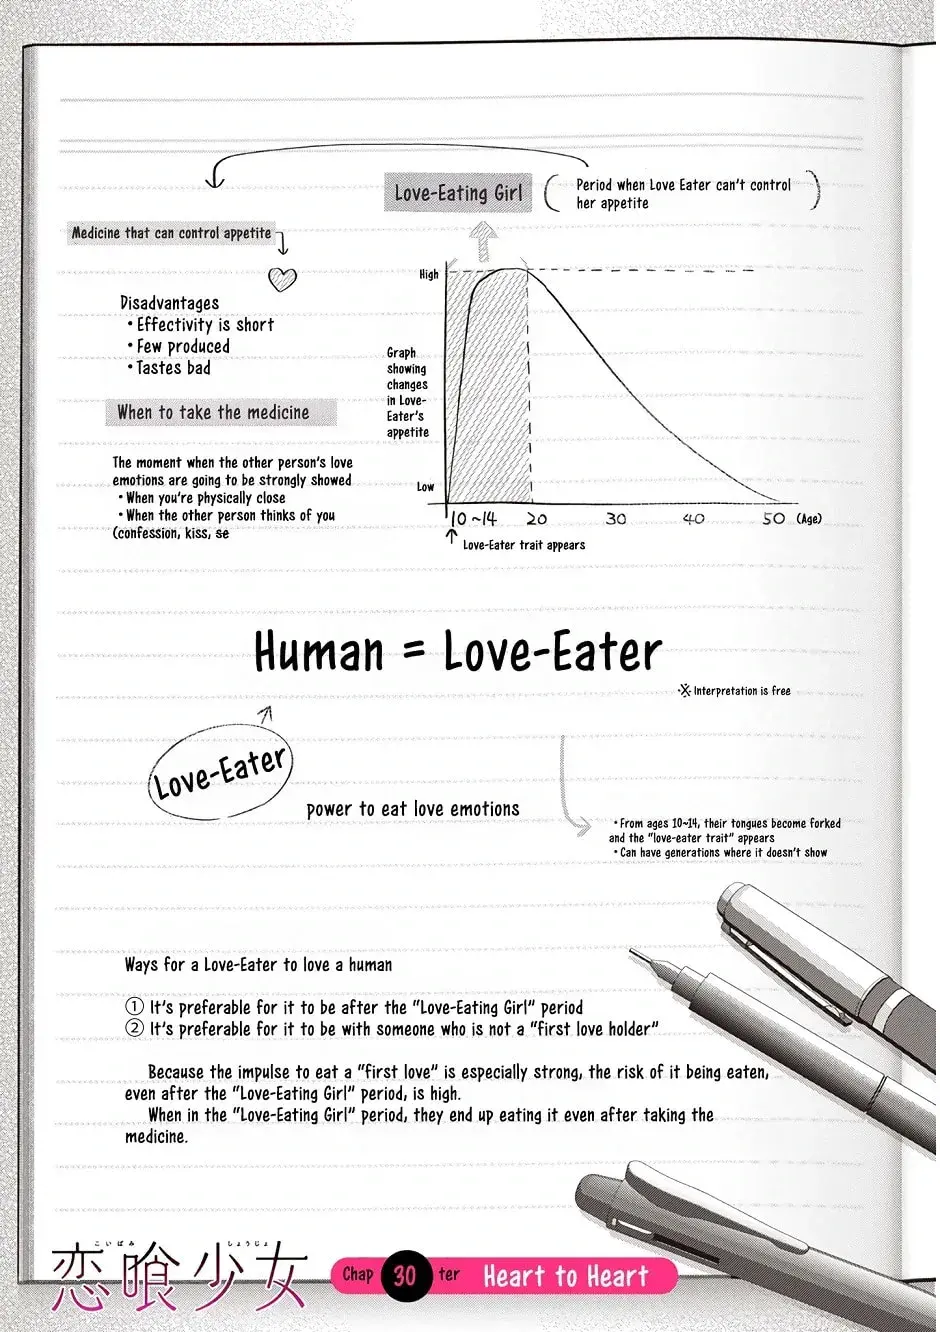 Love-Eating Girl
Period when Love Eater can't control
her appetite
Medicine that can control appetite
Disadvantages
・Effectivity is short
・Few produced
・Tastes bad
When to take the medicine
The moment when the other person's love
emotions are going to be strongly showed
・When you're physically close
・When the other person thinks of you
(confession, kiss, se
High
Graph
showing
changes
in Love-
Eater's
appetite
Low
10 ~14 20 30 40 50 (Age)
Love-Eater trait appears
Human = Love-Eater
※ Interpretation is free
Love-Eater
power to eat love emotions
・From ages 10~14, their tongues become forked
and the "love-eater trait" appears
・Can have generations where it doesn't show
Ways for a Love-Eater to love a human
① It's preferable for it to be after the "Love-Eating Girl" period
② It's preferable for it to be with someone who is not a "first love holder"
Because the impulse to eat a "first love" is especially strong, the risk of it being eaten,
even after the "Love-Eating Girl" period, is high.
When in the "Love-Eating Girl" period, they end up eating it even after taking the
medicine.
こいばみ しょうじょ
恋喰少女
Chap 30 ter Heart to Heart